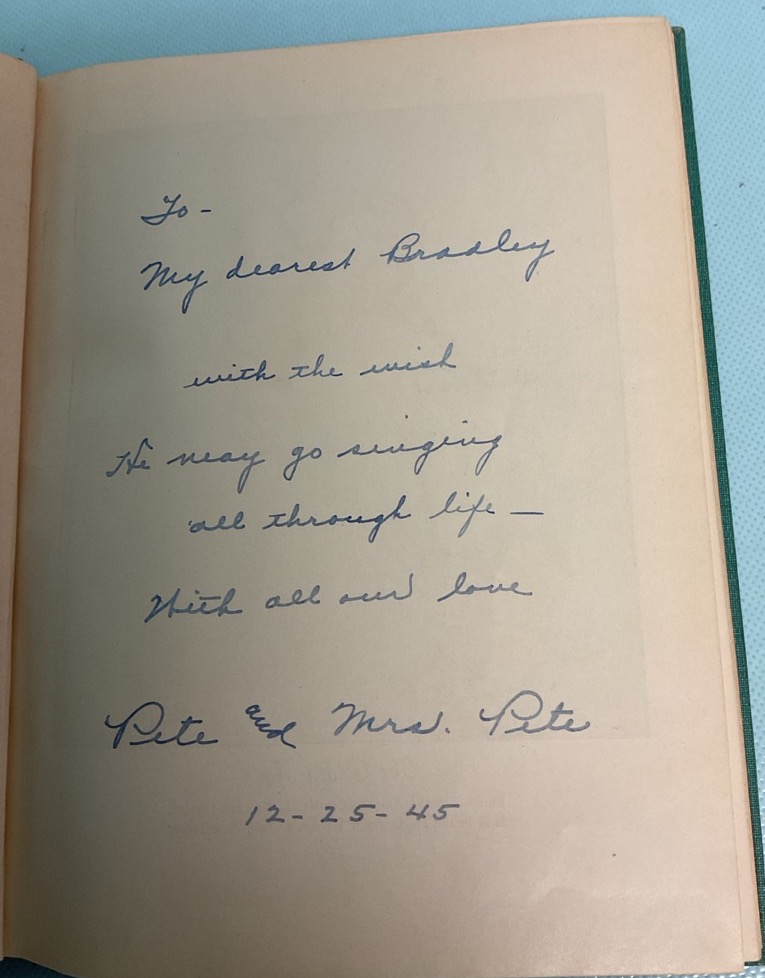 To -
My dearest Bradley
with the wish
He may go singing
all through life —
With all our love
Pete and Mrs. Pete
12-25-45